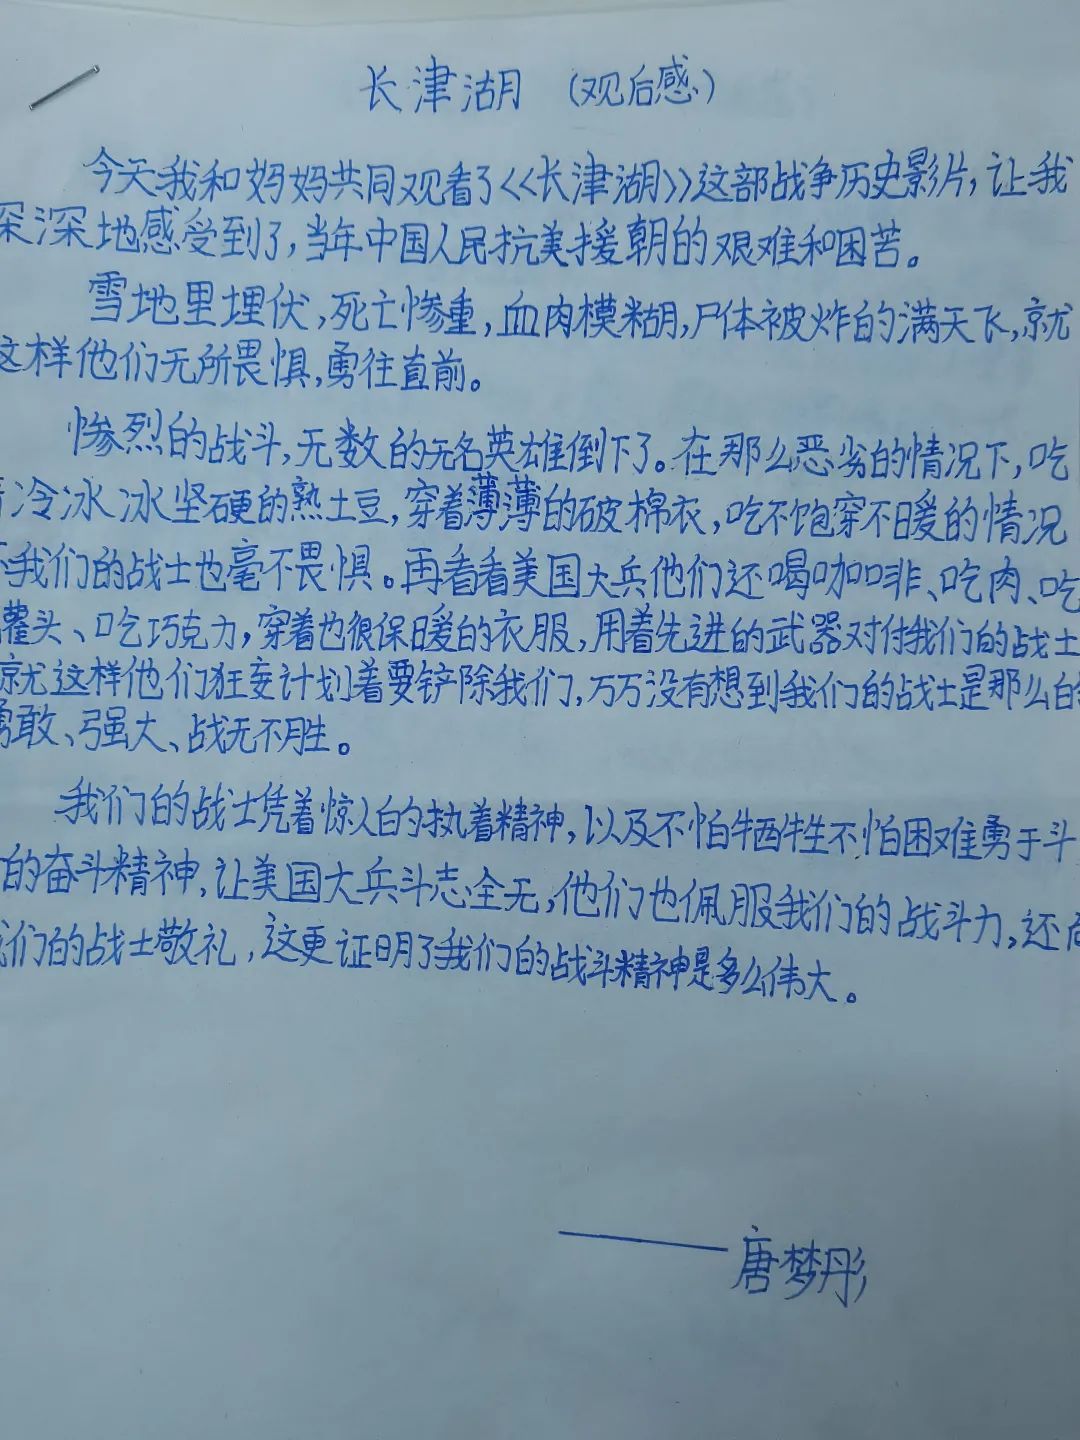 长津湖 (观后感)
今天我和妈妈共同观看了<<长津湖>>这部战争历史影片,让我
深深地感受到了,当年中国人民抗美援朝的艰难和困苦。
雪地里埋伏,死亡惨重,血肉模糊,尸体被炸的满天飞,就
这样他们无所畏惧,勇往直前。
惨烈的战斗,无数的无名英雄倒下了。在那么恶劣的情况下,吃
着冷冰冰坚硬的熟土豆,穿着薄薄的破棉衣,吃不饱穿不暖的情况
下我们的战士也毫不畏惧。再看看美国大兵他们还喝咖啡、吃肉、吃
罐头、吃巧克力,穿着也很保暖的衣服,用着先进的武器对付我们的战士
就这样他们狂妄计划着要铲除我们,万万没有想到我们的战士是那么的
勇敢、强大、战无不胜。
我们的战士凭着惊人的执着精神,以及不怕牺牲不怕困难勇于斗
的奋斗精神,让美国大兵斗志全无,他们也佩服我们的战斗力,还向
我们的战士敬礼,这更证明了我们的战斗精神是多么伟大。
——唐梦彤